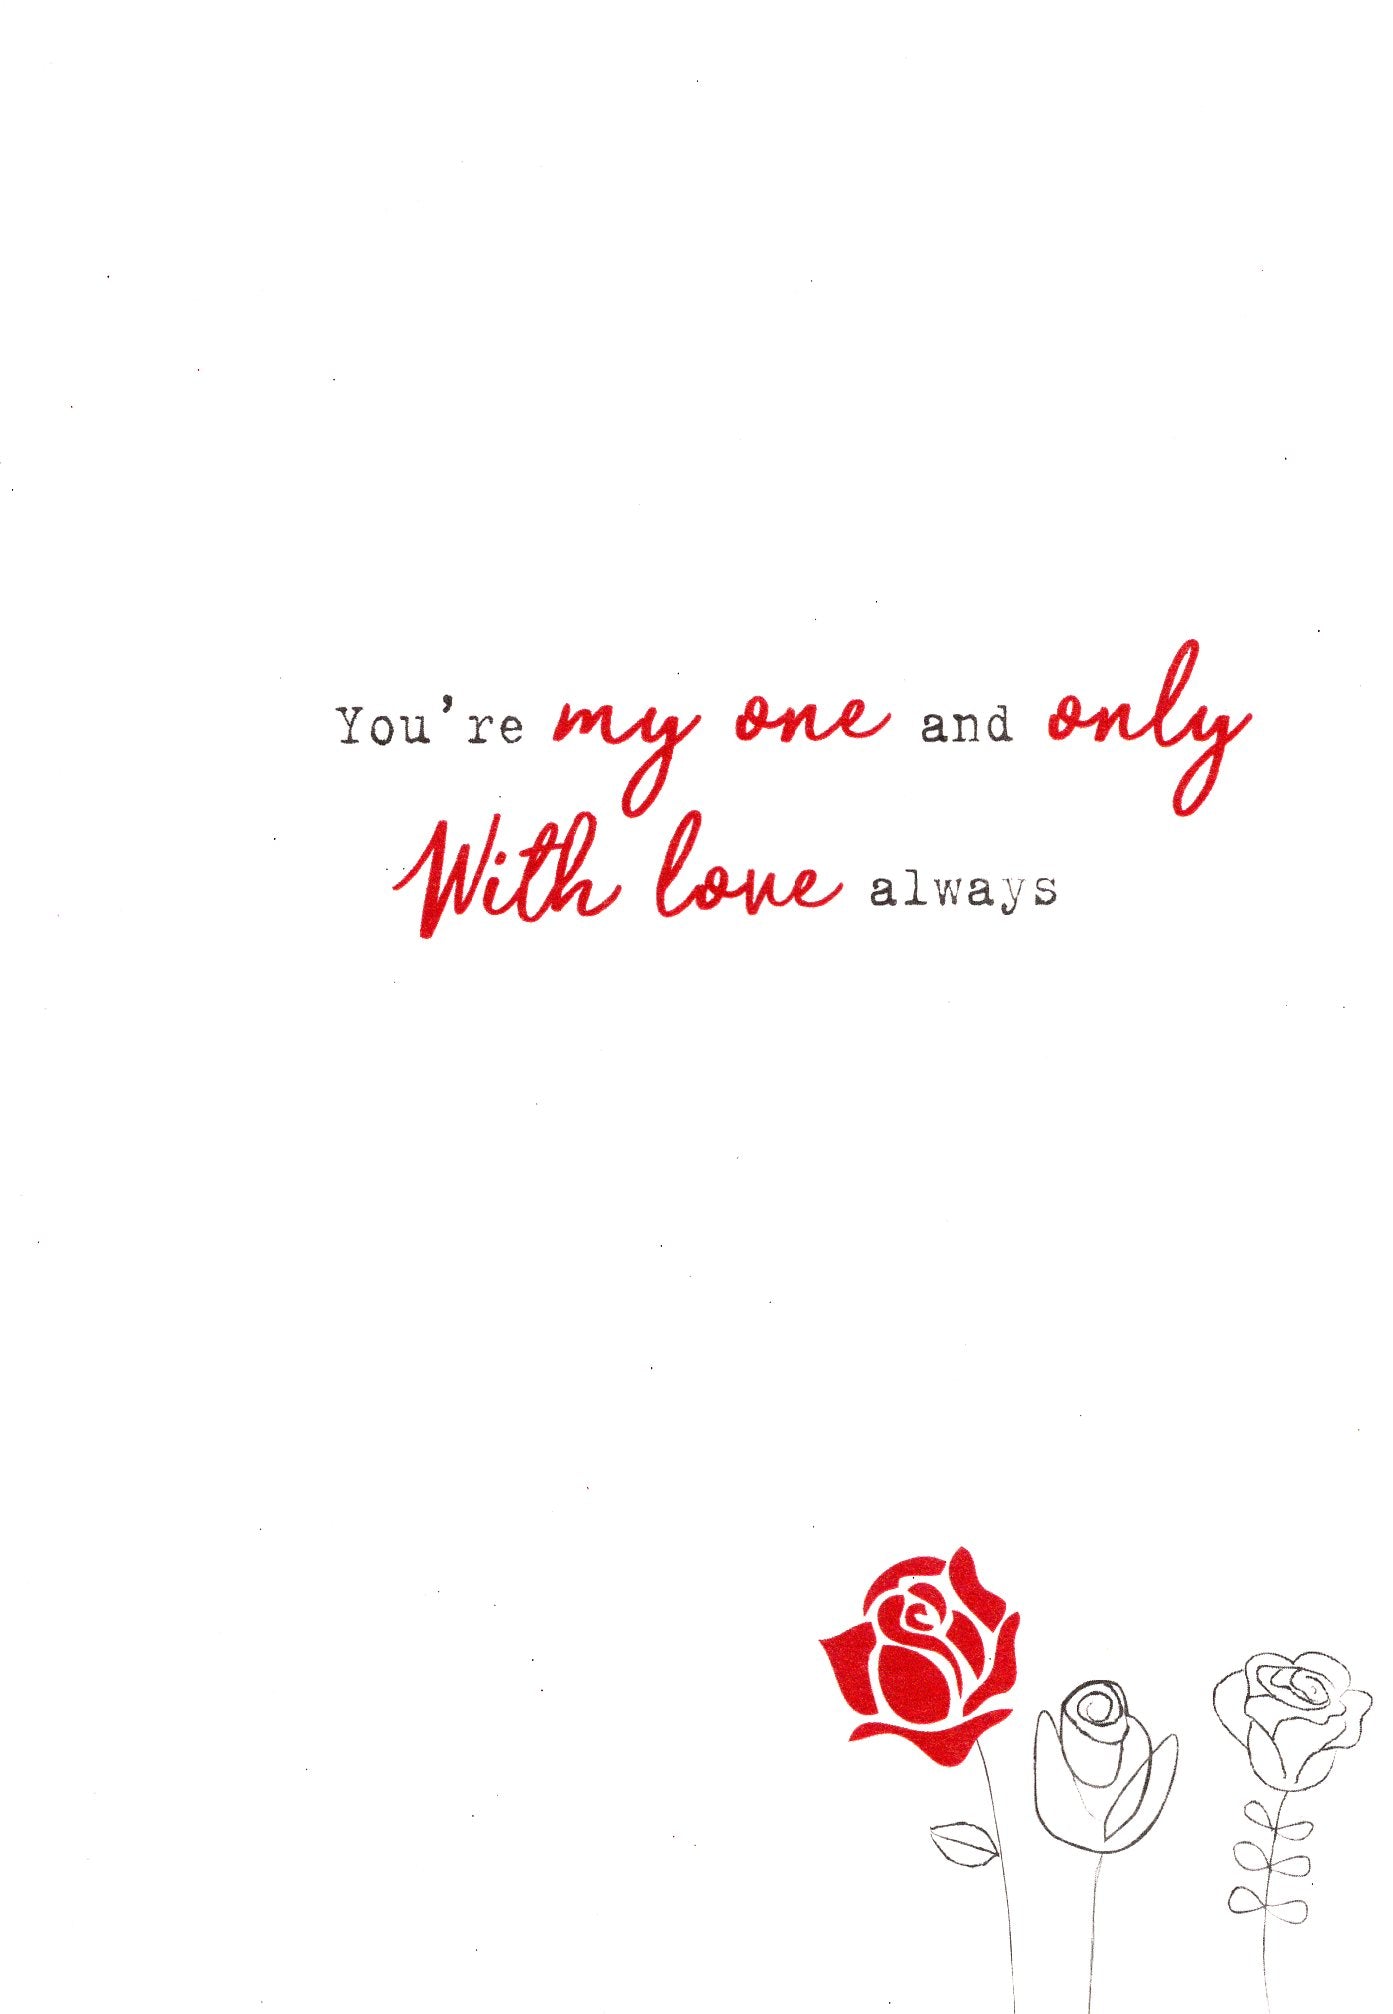 You're my one and only
With love always